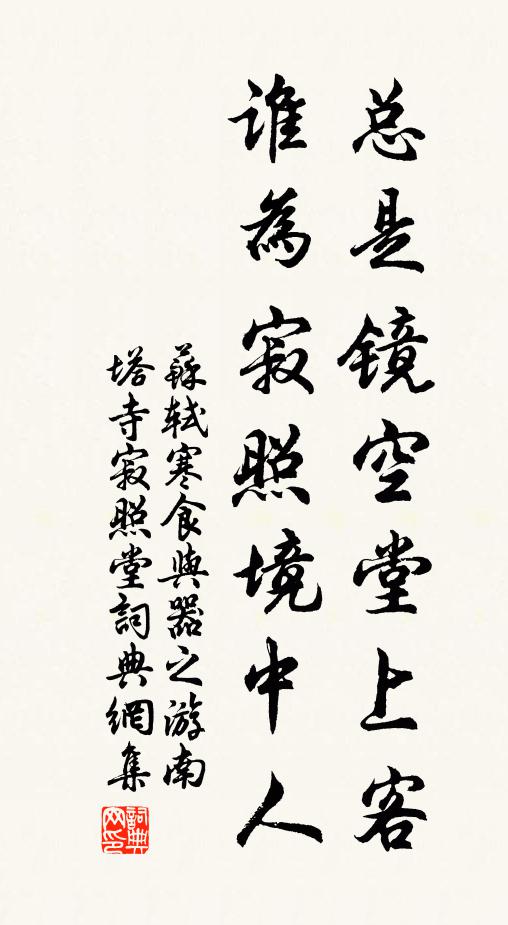 总是镜空堂上客
谁為寂照境中人
蘇轼寒食與器之游南
塔寺寂照堂詞典網集
詞典网印